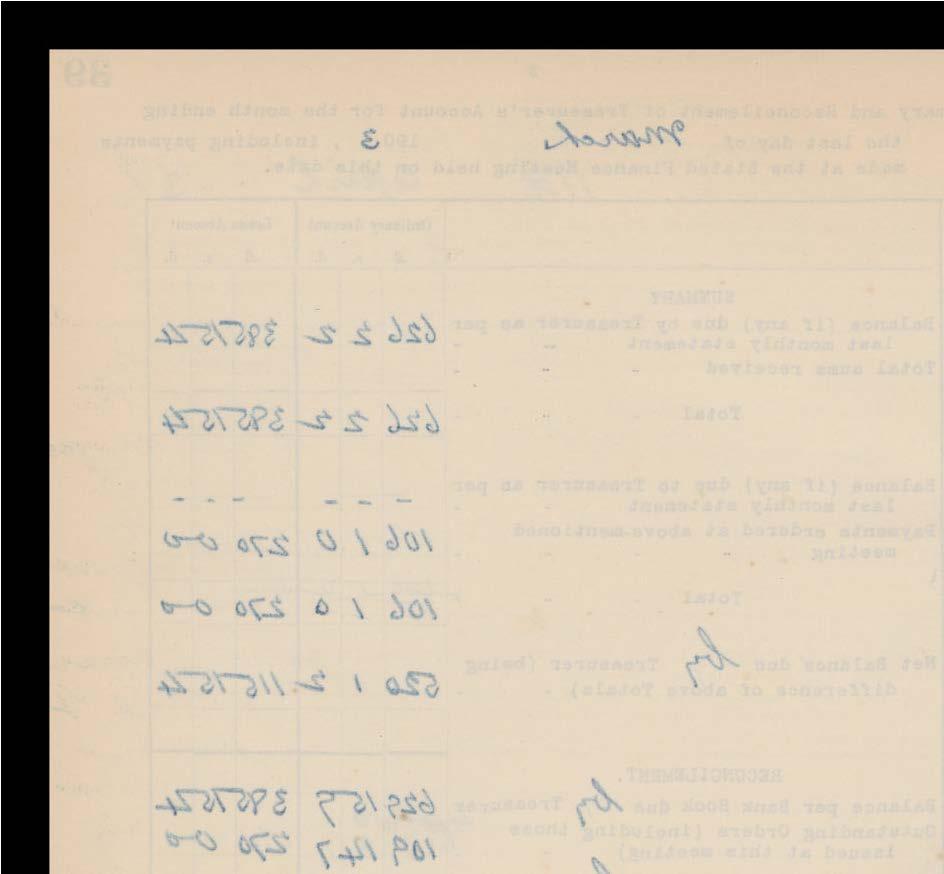 Summary and Reconcilement of Treasurer's Account for the month ending
the last day of March 1903, including payments
made at the Stated Finance Meeting held on this date.
Ordinary Account Loans Account
£ s. d. £ s. d.
SUMMARY
Balance (if any) due by Treasurer as per
last monthly statement - - 626 2 2 385 15 4
Total sums received - - -
Total - - - 626 2 2 385 15 4
Balance (if any) due to Treasurer as per
last monthly statement - - - - - - - -
Payments ordered at above-mentioned
meeting - - - 106 1 0 270 0 0
Total - - - 106 1 0 270 0 0
Net Balance due by Treasurer (being
difference of above Totals) - - 520 1 2 115 15 4
RECONCILEMENT.
Balance per Bank Book due by Treasurer 629 15 9 385 15 4
Outstanding Orders (including those
issued at this meeting) - 109 14 7 270 0 0